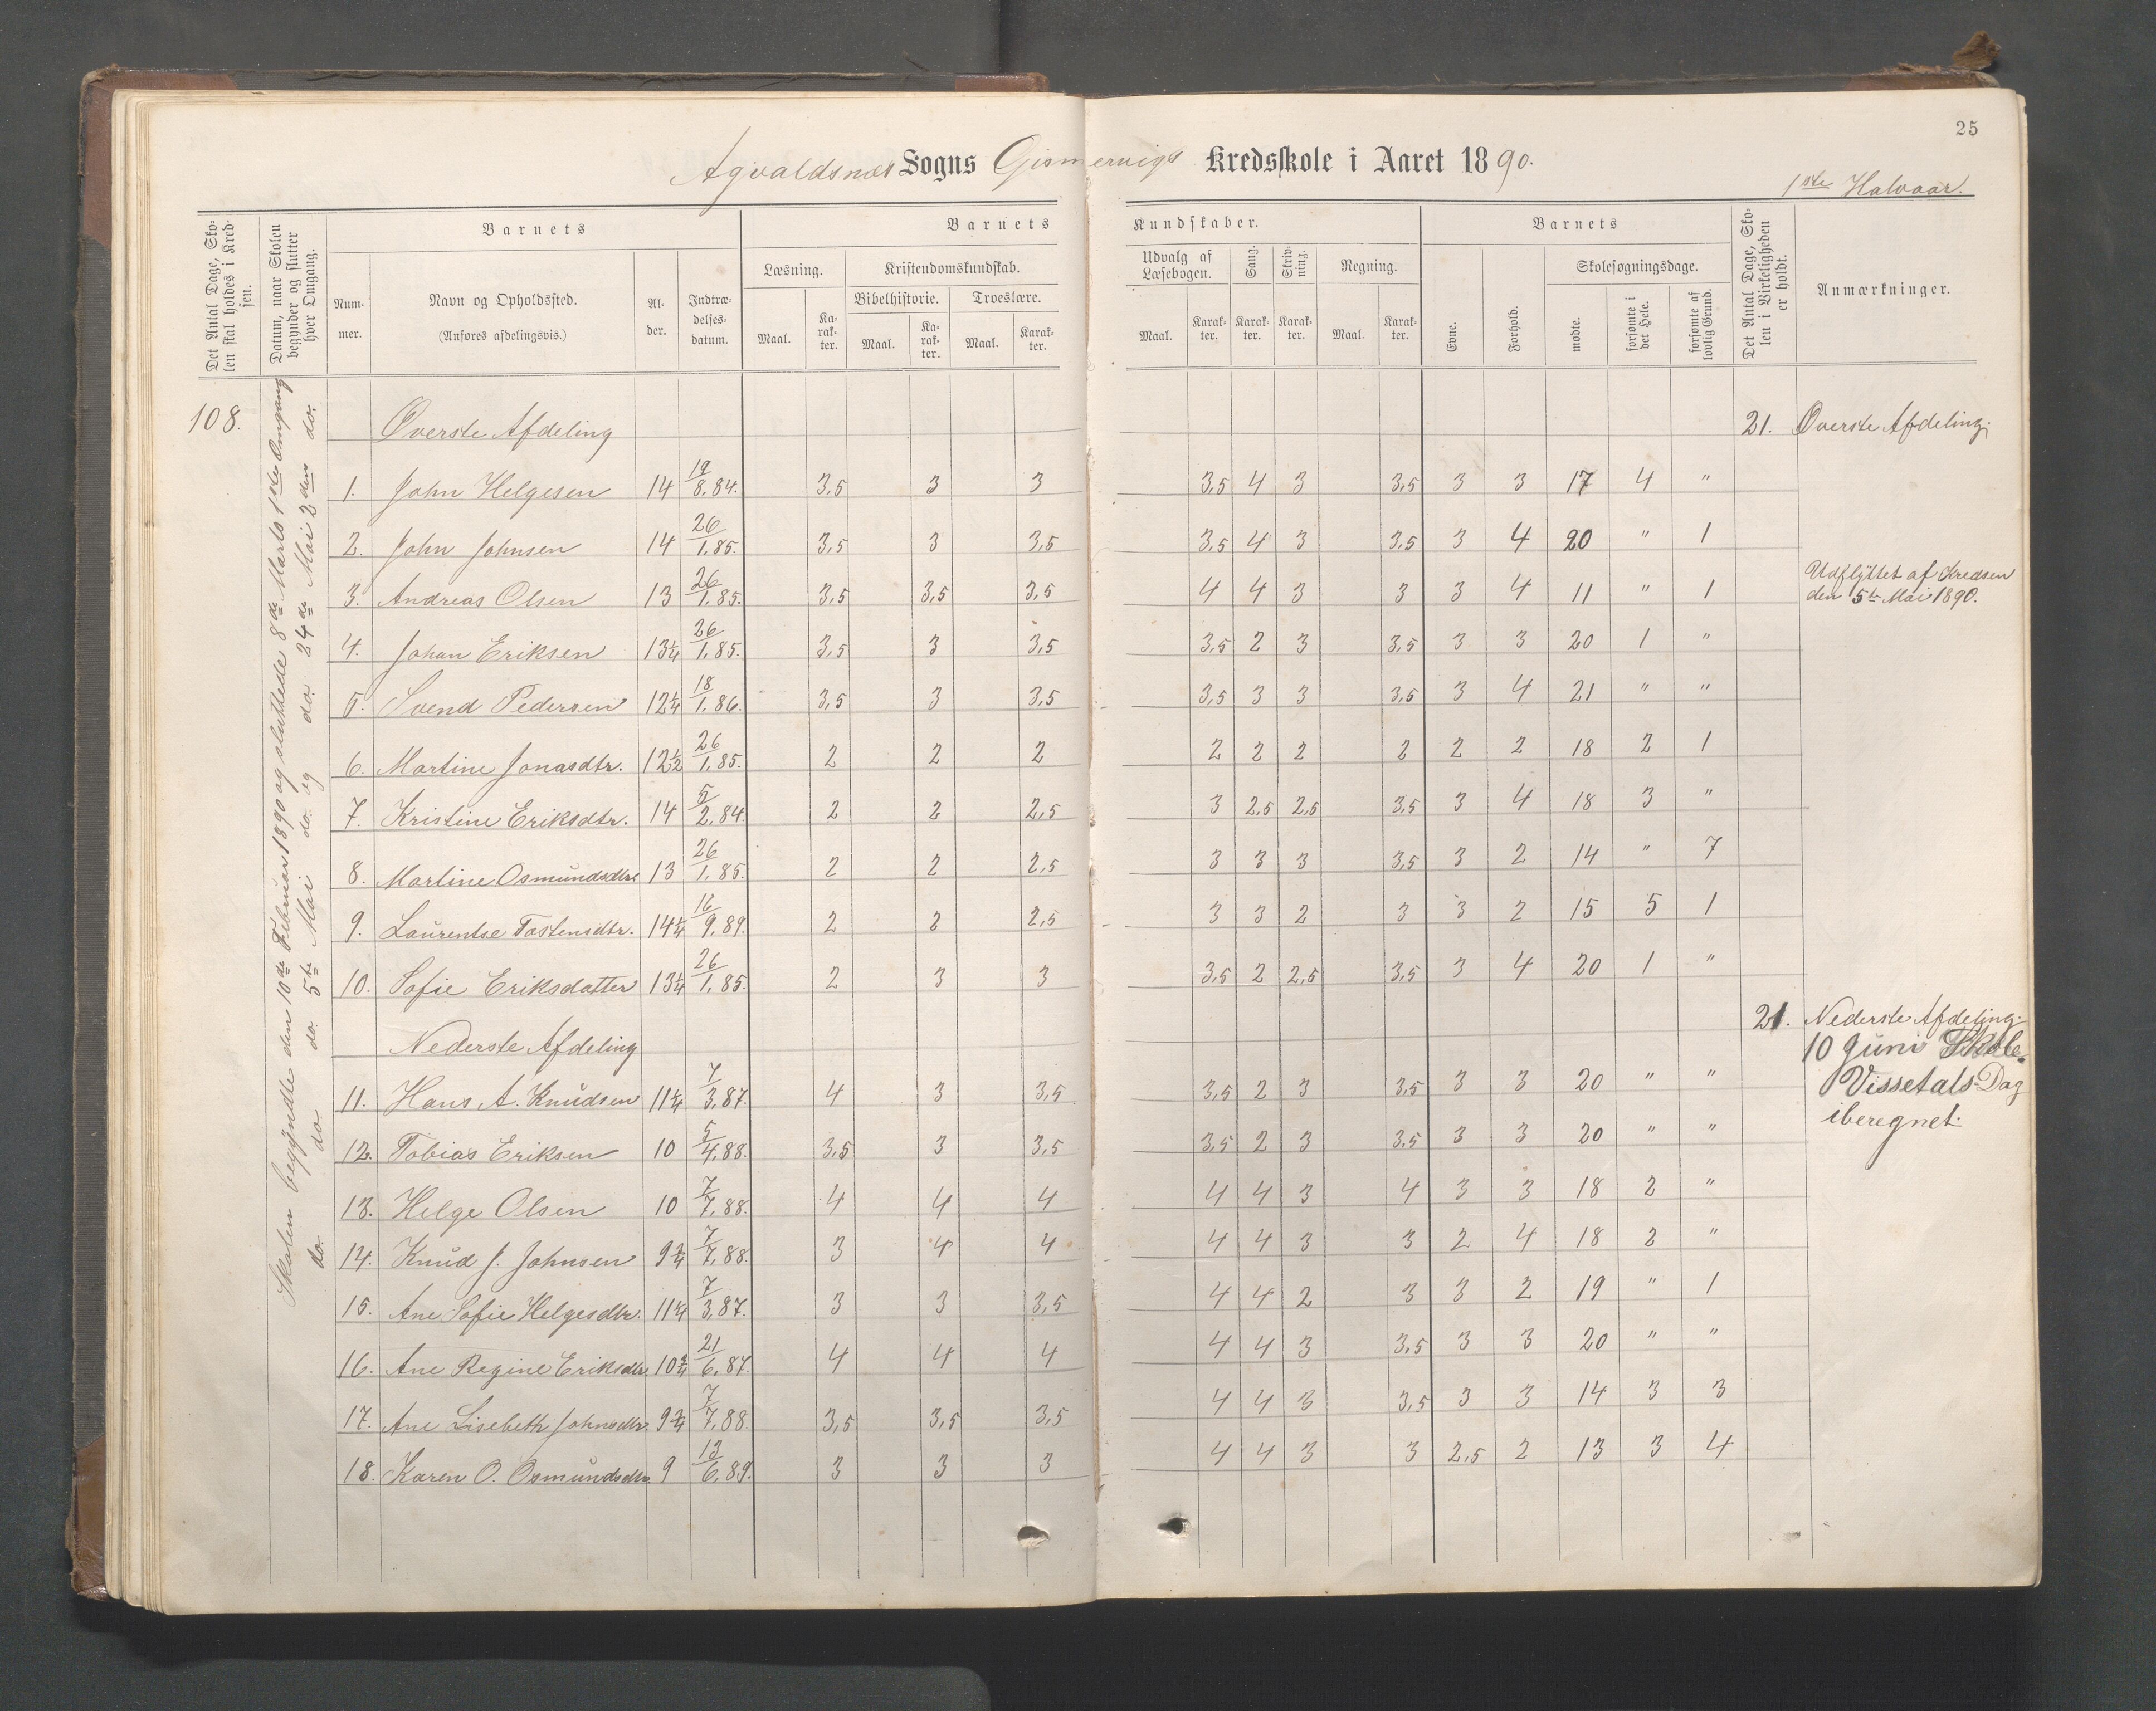 25
Agvaldsnæs Sogns Gismervigs Kredsskole i Aaret 1890.
1ste Halvaar.
Det Antal Dage, Skolen skal holdes i Kredsen.
Datum, naar Skolen begynder og slutter hver Omgang.
Barnets
Barnets Kundskaber.
Barnets
Det Antal Dage, Skolen i Virkeligheden er holdt.
Anmærkninger.
Nummer.
Navn og Opholdssted.
(Anføres afdelingsvis.)
Alder.
Indtrædelsesdatum.
Læsning.
Kristendomskundskab.
Bibelhistorie.
Troeslære.
Udvalg af Læsebogen.
Sang.
Skrivning.
Regning.
Evne.
Forhold.
Skolesøgningsdage.
Maal. Karakter. Maal. Karakter. Maal. Karakter. Maal. Karakter. Karakter. Karakter. Maal. Karakter.
mødte.
forsømte i det Hele.
forsømte af lovlig Grund.
108.
Skolen begyndte den 10de Februar 1890 og sluttede 8de Marts 1ste Omgang
do. do. do. 5te Mai do. og do. 24de Mai 2den do.
Øverste Afdeling 21. Øverste Afdeling.
1. John Helgesen 14 19/8.84. 3,5 3 3 3,5 4 3 3,5 3 3 17 4 "
2. John Johnsen 14 26/1.85. 3,5 3 3,5 3,5 4 3 3,5 3 4 20 " 1
3. Andreas Olsen 13 26/1.85. 3,5 3,5 3,5 4 4 3 3 3 4 11 " 1 Udflyttet af Kredsen
den 5te Mai 1890.
4. Johan Eriksen 13 1/4 26/1.85. 3,5 3 3,5 3,5 2 3 3,5 3 3 20 1 "
5. Svend Pedersen 12 1/4 18/1.86. 3,5 3 3,5 3,5 3 3 3,5 3 4 21 " "
6. Martine Jonasdtr. 12 1/2 26/1.85. 2 2 2 2 2 2 2 2 2 18 2 1
7. Kristine Eriksdtr. 14 5/2.84. 2 2 2,5 3 2,5 2,5 3,5 3 4 18 3 "
8. Martine Osmundsdtr. 13 26/1.85. 2 2 2,5 3 3 3 3,5 3 2 14 " 7
9. Laurentse Tostensdtr. 14 1/4 16/9.89. 2 2 2,5 3 3 2 3 3 2 15 5 1
10. Sofie Eriksdatter 13 1/4 26/1.85. 2 3 3 3,5 2 2,5 3,5 3 4 20 1 "
Nederste Afdeling 21. Nederste Afdeling.
10 Juni Skole
Vissetats Dag
iberegnet.
11. Hans A. Knudsen 11 1/4 7/3.87. 4 3 3,5 3,5 2 3 3,5 3 3 20 " "
12. Tobias Eriksen 10 5/4.88. 3,5 3 3,5 3,5 2 3 3,5 3 3 20 " "
13. Helge Olsen 10 7/7.88. 4 4 4 4 4 3 4 3 3 18 2 "
14. Knud J. Johnsen 9 3/4 7/7.88. 3 4 4 4 4 3 3 2 4 18 2 "
15. Ane Sofie Helgesdtr. 11 1/4 7/3.87. 3 3 3,5 4 4 2 3 3 2 19 " 1
16. Ane Regine Eriksdtr. 10 3/4 21/6.87. 4 4 4 4 4 3 3,5 3 3 20 " "
17. Ane Lisebeth Johnsdtr. 9 3/4 7/7.88. 3,5 3,5 3,5 4 4 3 3,5 3 3 14 3 3
18. Karen O. Osmundsdtr. 9 13/6.89. 3 3 3 4 4 3 3 2,5 2 13 3 4